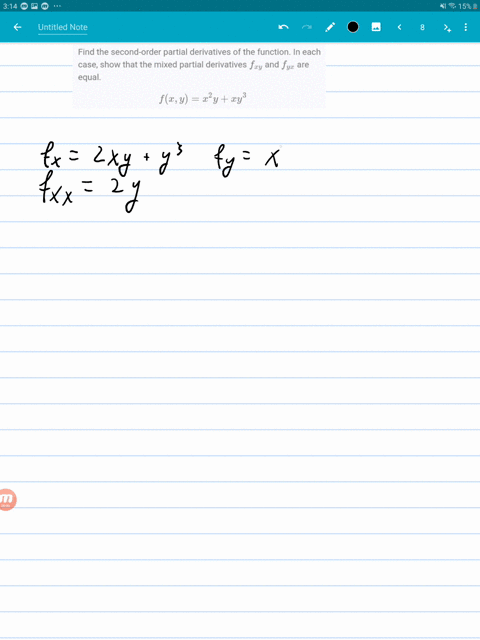 3:14 15%
Untitled Note 8
Find the second-order partial derivatives of the function. In each
case, show that the mixed partial derivatives f_{xy} and f_{yx} are
equal.
f(x, y) = x²y + xy³
f_x = 2xy + y³ f_y = x
f_{xx} = 2y
m